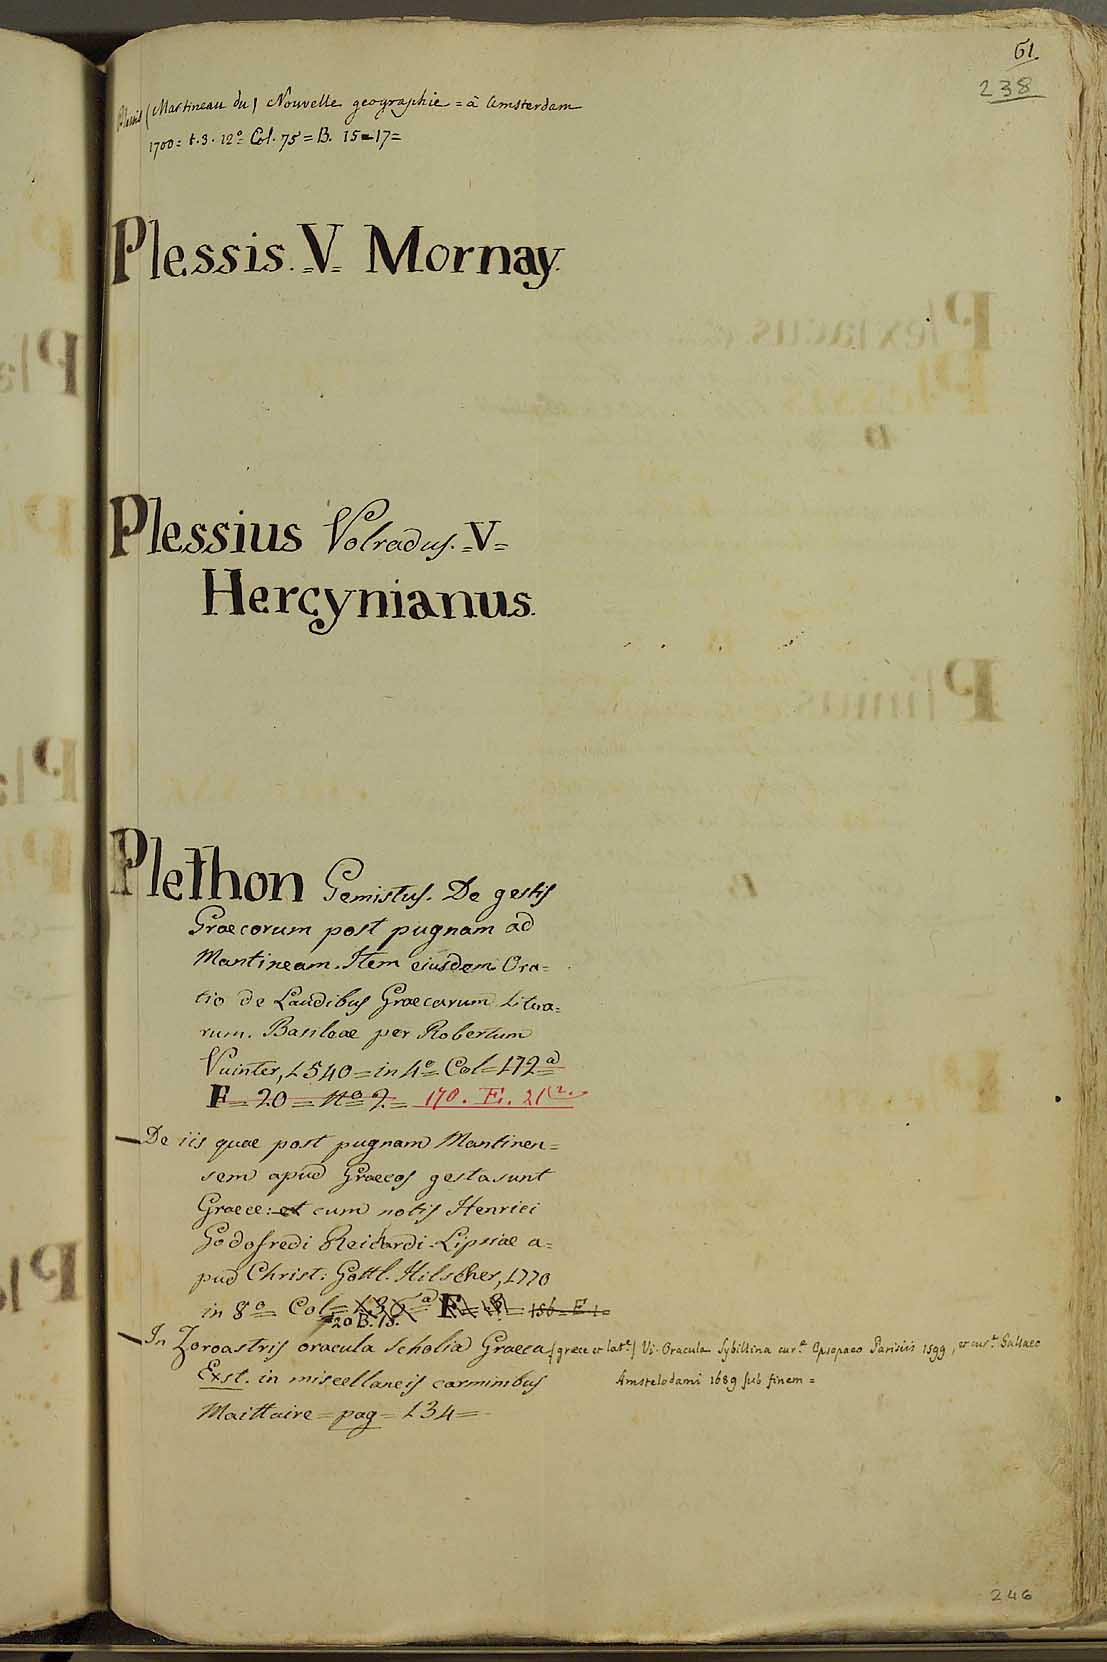 61.
238
Plessis (Martineau du) Nouvelle geographie = à Amsterdam
1700 = t. 3. 12º = Col. 75 = B. 15 = 17 =
Plessis. =V= Mornay.
Plessius Volradus. =V=
Hercynianus.
Plethon Gemistus. De gestis
Graecorum post pugnam ad
Mantineam. Item eiusdem Ora=
tio de Laudibus Graecarum Litera=
rum. Basileae per Robertum
Vuinter, 1540 = in 4º = Col = 172ª
F = 20 = nº 2 = 170. E. 21(2.
De iis quae post pugnam Mantinen=
sem apud Graecos gesta sunt
Graece: et cum notis Henrici
Godofredi Reichardi. Lipsiae a=
pud Christ: Gottl. Hilscher, 1770
in 8º = Col = 136ª F = = 156 = E 1 =
20 B. 15.
In Zoroastris oracula scholia Graeca (graece et latᵉ) Vi. Oracula Sybillina curᵉ Opsopaeo Parisiis 1599, et curᵉ Gallaeo
Amstelodami 1689 sub finem =
Exst. in miscellaneis carminibus
Maittaire = pag = 134 =
246